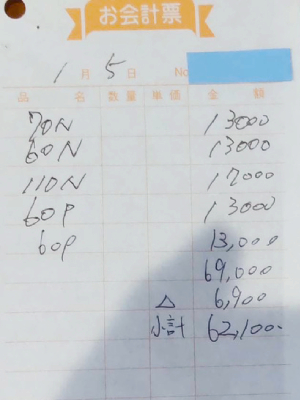 お会計票
1月5日 No.
品名 数量 単価 金額
70N 13000
60N 13000
110N 17000
60P 13000
60P 13,000
69,000
△ 6,900
小計 62,100